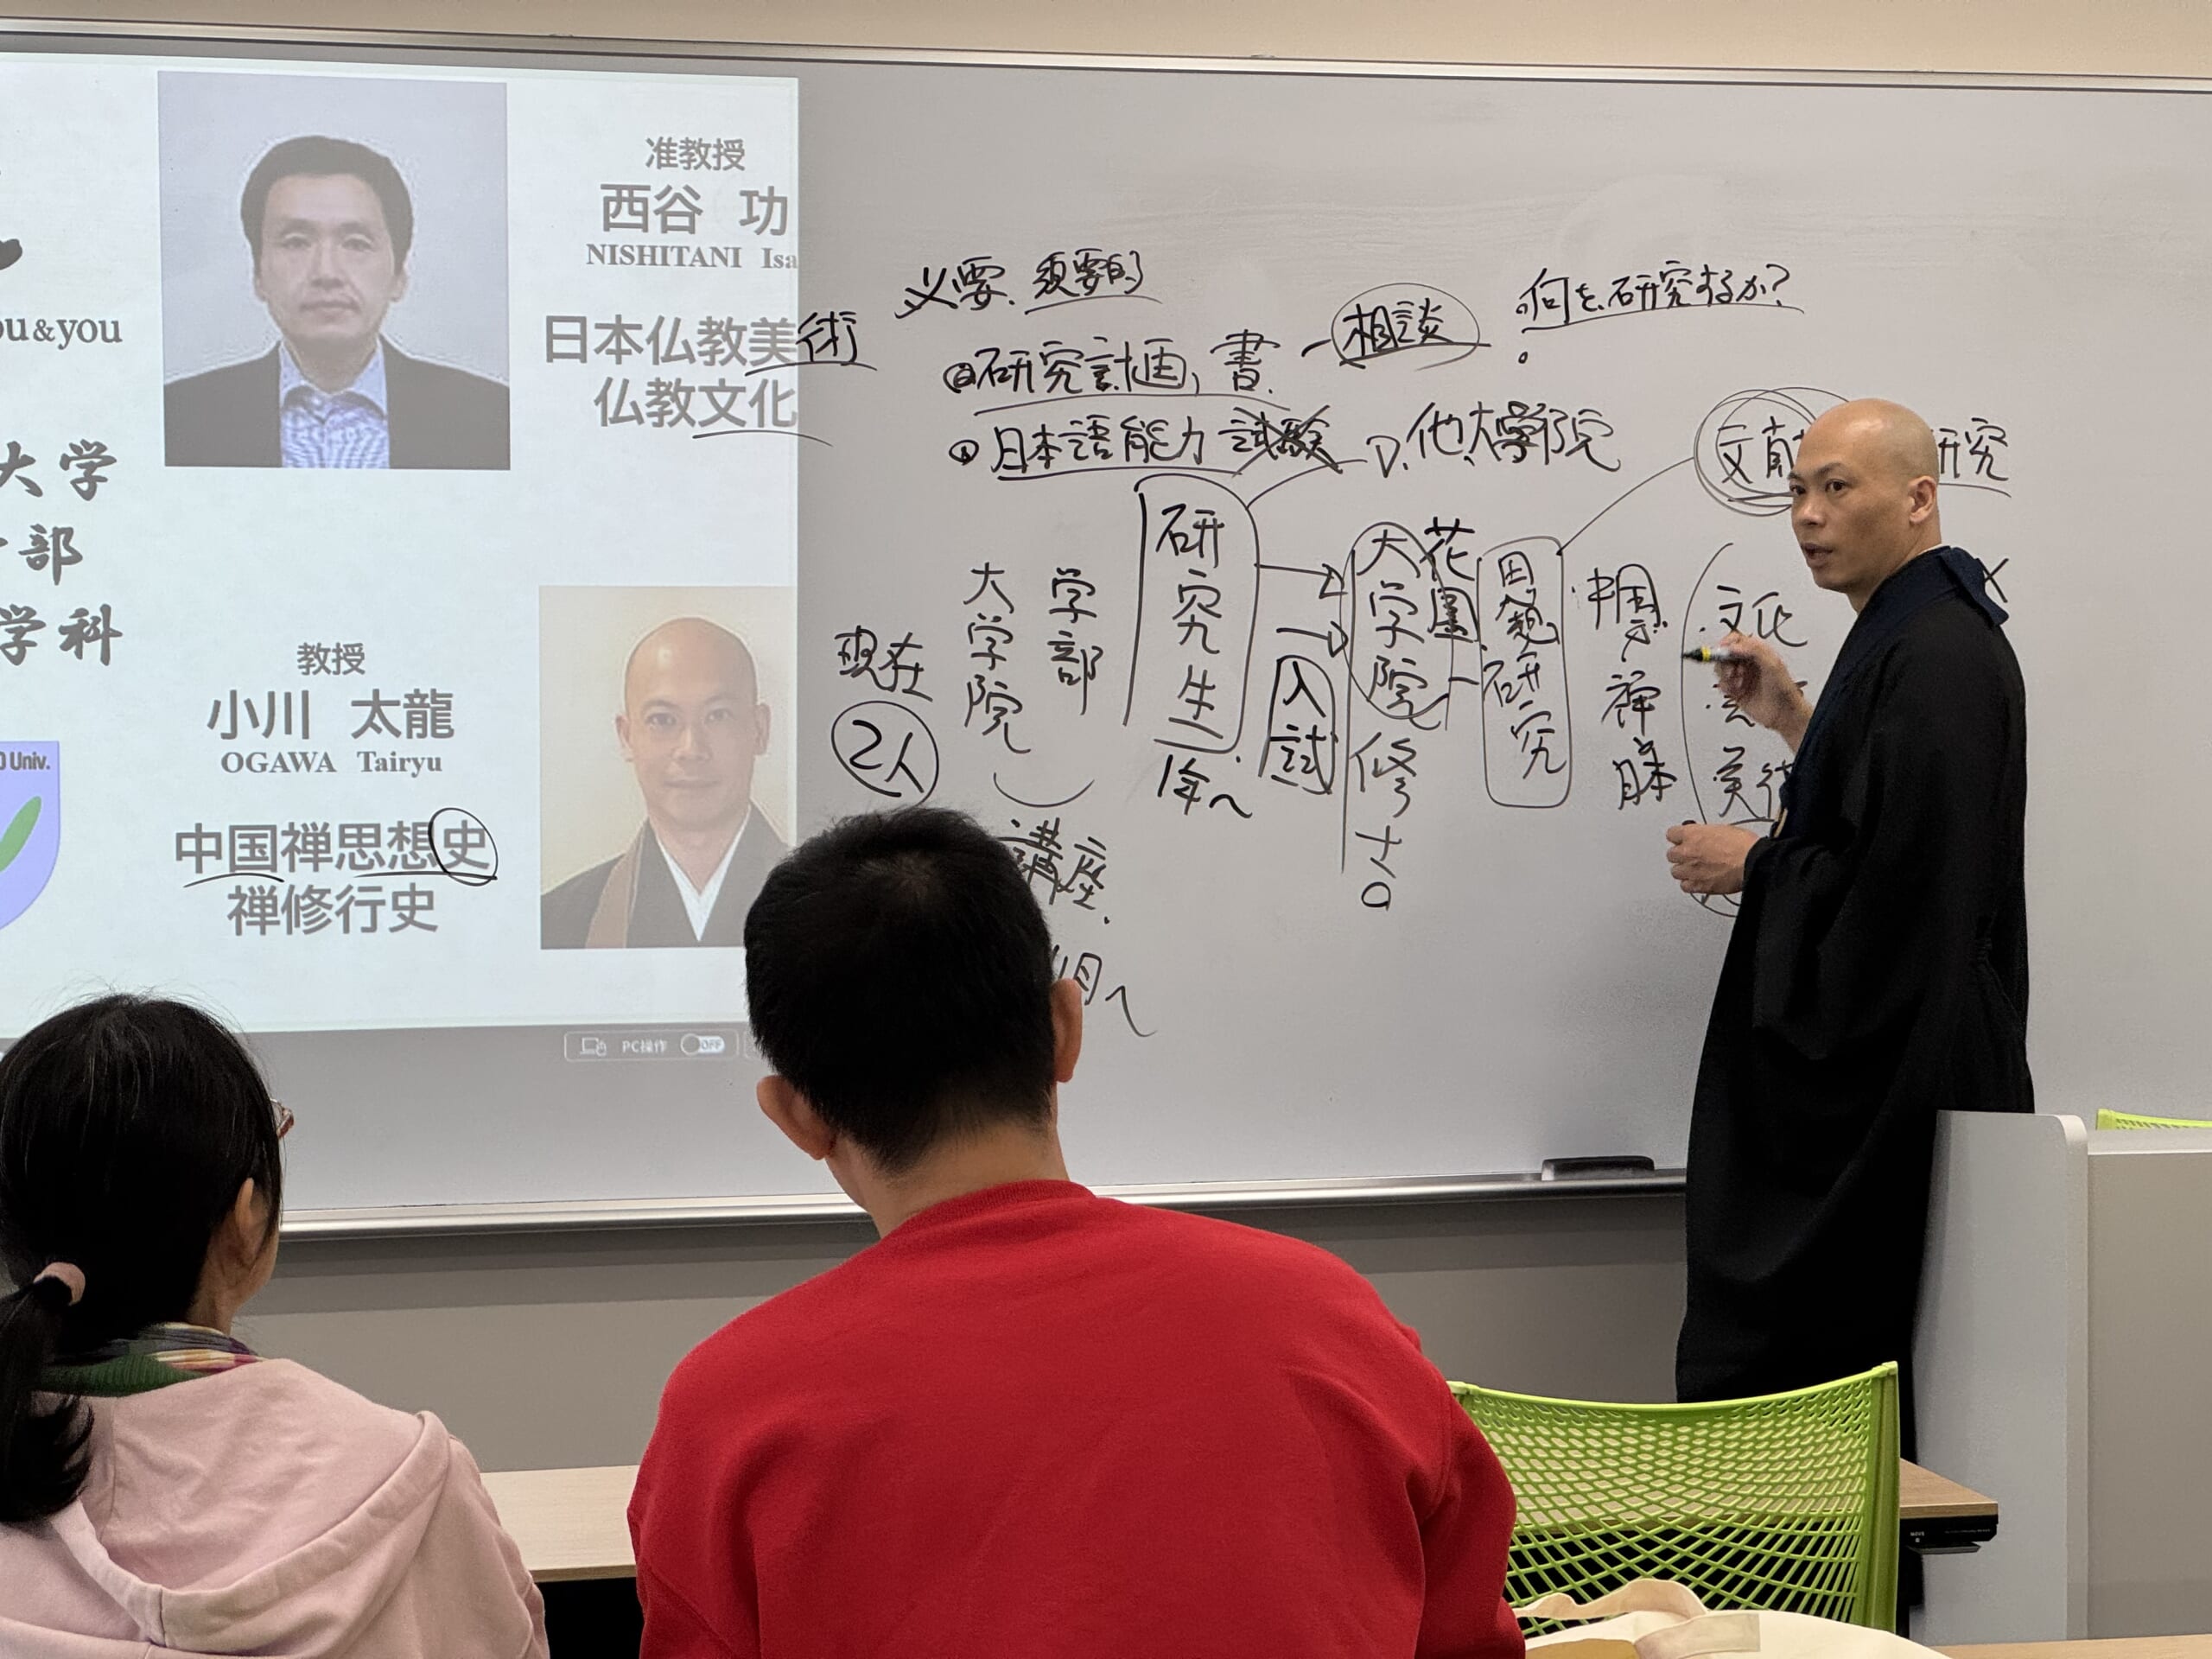 ou&you
大学
部
学科
Univ.
准教授
西谷 功
NISHITANI Isa
日本仏教美術
仏教文化
教授
小川 太龍
OGAWA Tairyu
中国禅思想史
禅修行史
PC操作 OFF
必要、須要的
研究計画書 相談
何を研究するか?
日本語能力試験
他大学院
研究
研究生
1年~
入試
大学院修士
花園
問題研究
中国
禅
日本
文化
現在
2人
大学院
学部
講座